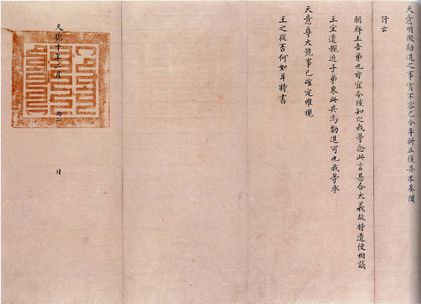 天意明徵勸進之事不容已今年新正復具本奏聞
汗言
朝鮮王吾弟也亦宜令彼知之我等念此言甚合大義故特遣使相議
王宜遣親近子弟來此共為勸進可也我等承
天意尊大號事已確定唯視
王之從否何如耳特書
天聰十年二月 日